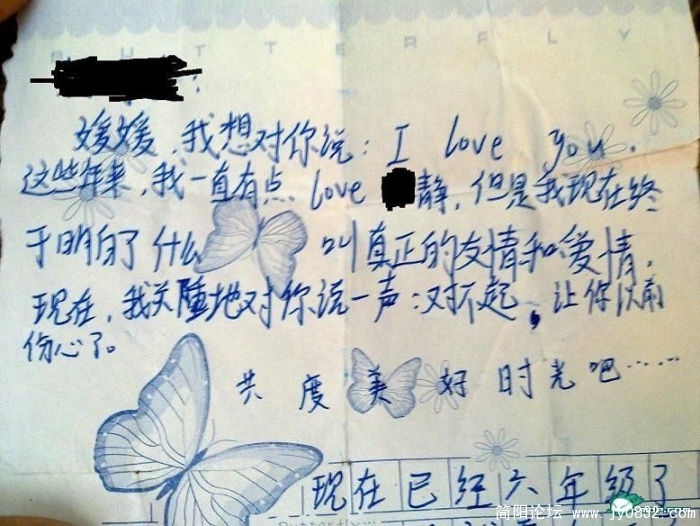 BUTTERFLY
媛媛,我想对你说:I love you.
这些年来,我一直有点 love 静,但是我现在终
于明白了什么 叫真正的友情和爱情,
现在,我关 地对你说一声:对不起,让你以前
伤心了。
共度美好时光吧……
现在已经六年级了
简阳论坛 www.jy0832.com